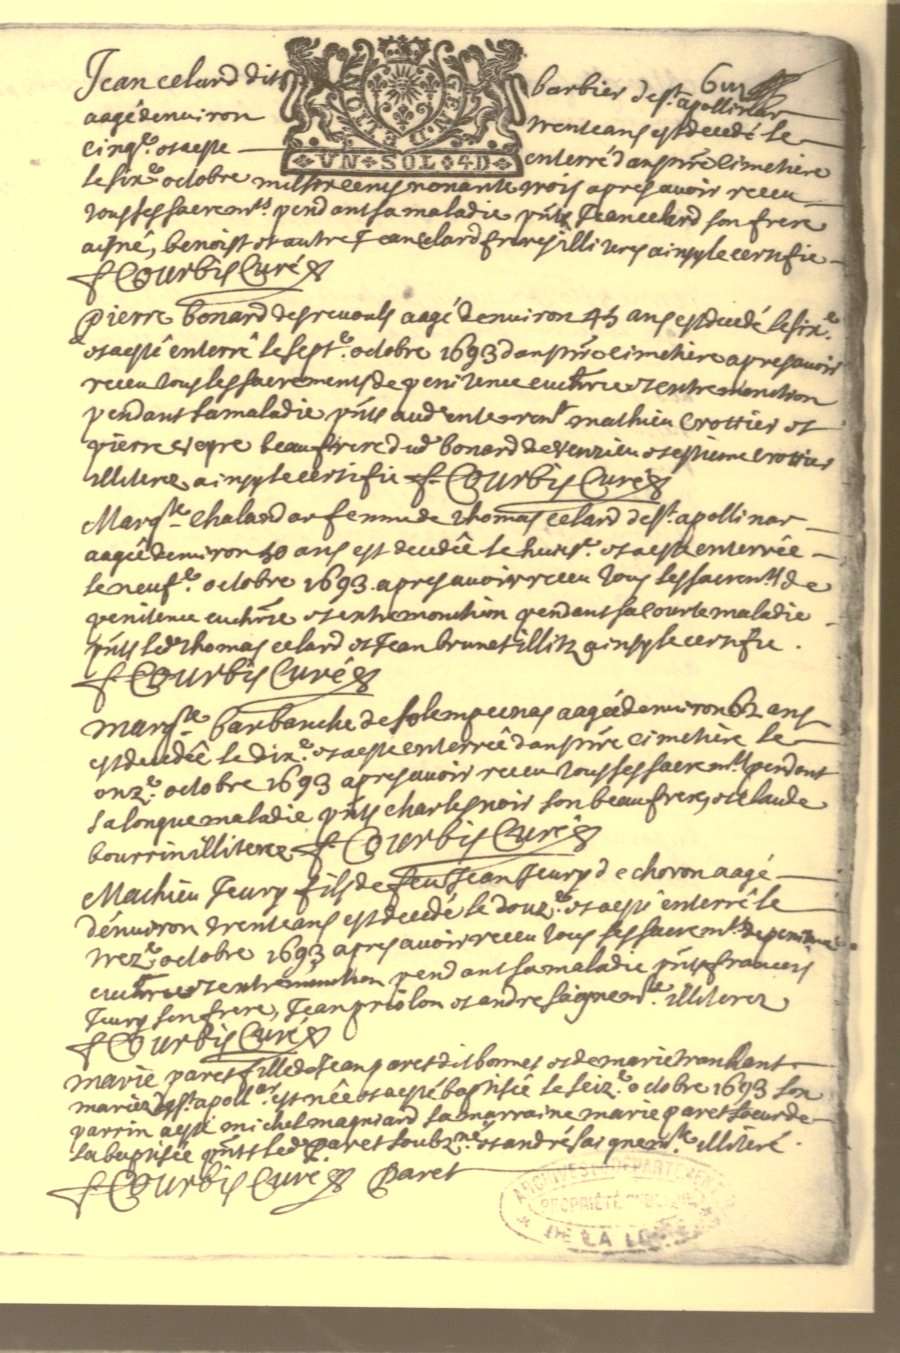 Jean celard dit barbier de st apollinar
aagé denviron trente ans est decedé le
cinqe. et a este enterré dans nre cimetiere
le sixe octobre mil six cents nonante trois apres avoir receu
tous ses sacremts pendant sa maladie pnts Jean celard son frere
aisné, benoist et autre Jean Celard freres illiteres ainsy le certifie
f Courbis Curé
pierre bonard des revouls aagé denviron 45 ans est decedé le sixe.
et a esté enterré le septe. octobre 1693 dans nre cimetiere apres avoir
receu tous les sacrements de penitence euchrie et extremonction
pendant sa maladie pnts mathieu Crottier et
pierre beaufrere dud bonard et estienne Crottier
illiteres ainsy le certifie f Courbis Curé
Margte Chalandar femme de thomas celard de st. apollinar
aagée denviron 50 ans est decedée le huite. et a este enterrée
le neufe. octobre 1693. apres avoir receu tous les sacremts de
penitence euchrie et extremonction pendant sa courte maladie
pnts led thomas celard et Jean brunet illitz ainsy le certifie.
f Courbis Curé
margte barbanche de aagée denviron 62 ans
est decedée le dixe. et a este enterrée dans nre cimetiere le
onze. octobre 1693 apres avoir receu tous ses sacremts pendant
sa longue maladie pnts charles noir son beaufrere, et claude
bourrin illiteres f Courbis Curé
Mathieu Jeury fils de feu Jean Jeury de choron aagé
denviron trente ans est decedé le douze. et a esté enterré le
treze. octobre 1693 apres avoir receu tous ses sacremts de penitence
euchrie et extremonction pendant sa maladie pnts francois
Jeury son frere, Jean priolon et andre saignemte. illiteres
f Courbis Curé
marie paret fille de Jean paret dit bornes et de marie tranchant
mariez de st. apollar est née et a esté baptisée le seize. octobre 1693 son
parrin a esté michel magniard sa marraine marie paret soeur de
la baptisée pnts led P. paret soubzné. et andré saignemte illiteré.
f Courbis Curé Paret
VN · SOL · 4D
ARCHIVES DEPARTEMENTALES
PROPRIÉTÉ PUBLIQUE
DE LA LOIRE